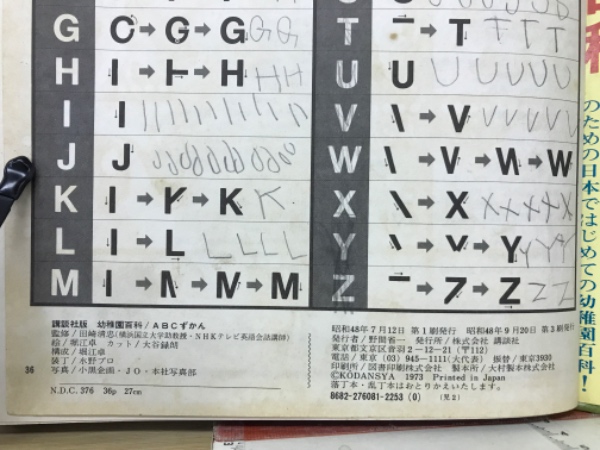 G C→G→G GG
H I→Ͱ→H HH
I I
J J
K I→K→K K
L I→L LLLL
M I→N→M→M
T ‾→T TTT
U U UUUUU
V \→V VVVVV
W \→V→W→W
X \→X XXXXX
Y \→V→Y YYY
Z ‾→7→Z ZZ
講談社版 幼稚園百科/ABCずかん
絵/堀江卓 カット/大谷緑朗
構成/堀江卓
装丁/水野プロ
写真/小黒企画・JO・本社写真部
36
N.D.C. 376 36p 27cm
昭和48年7月12日 第1刷発行 昭和48年9月20日 第3刷発行
発行者/野間省一 発行所/株式会社 講談社
東京都文京区音羽2-12-21(〒112)
電話/東京(03)945-1111(大代表) 振替/東京3930
印刷所/図書印刷株式会社 製本所/大村製本株式会社
©KŌDANSYA 1973 Printed in Japan
落丁本・乱丁本はおとりかえいたします。
8682-276081-2253(0) (児2)
科
のための日本ではじめての幼稚園百科!